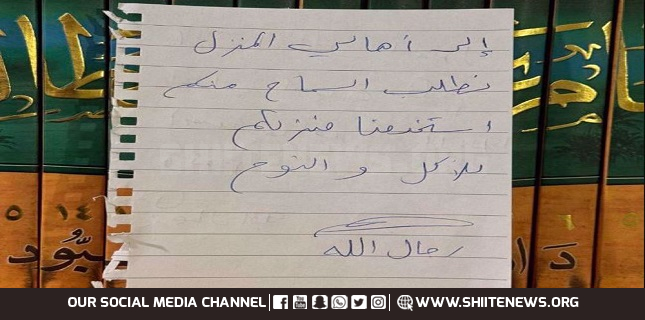 إلى أهالي المنزل
نطلب السماح منكم
استخدمنا منزلكم
للأكل و النوم
رجال الله
٥
١٤
OUR SOCIAL MEDIA CHANNEL
WWW.SHIITENEWS.ORG